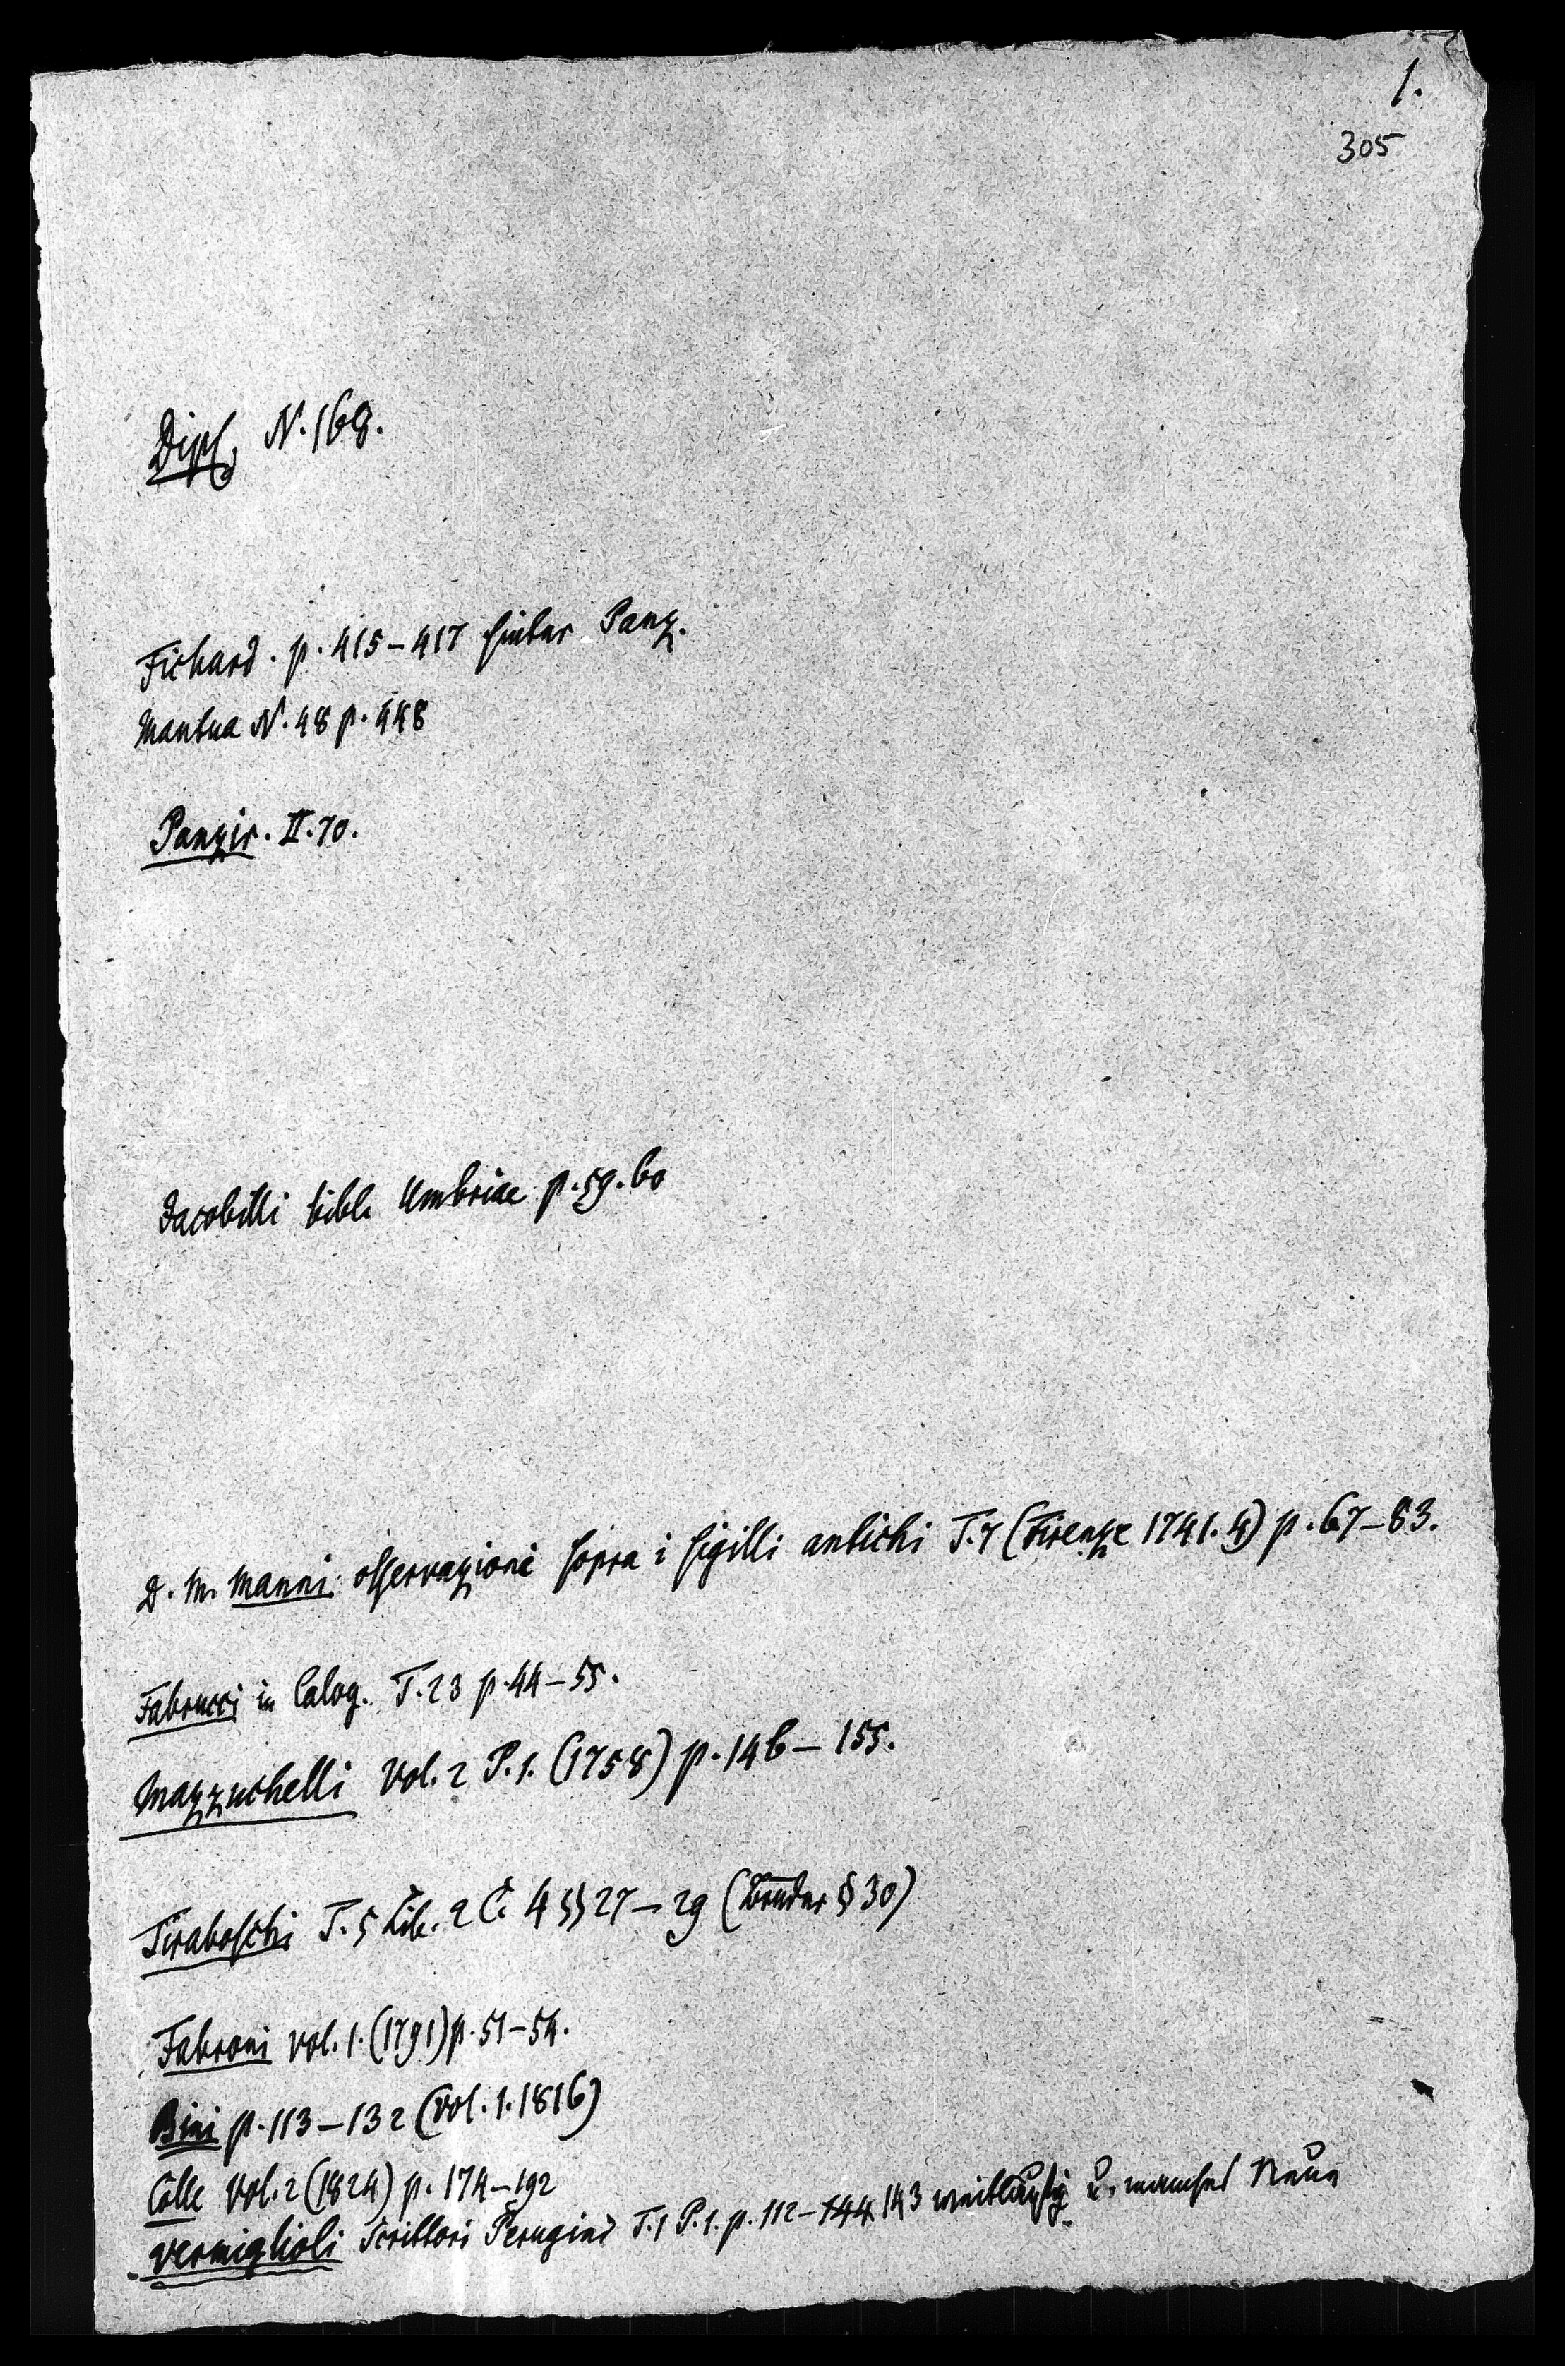 1.
305
Dipl. N. 168.
Fichard. p. 415–417 hinter Panz.
Mantua N. 48 p. 448
Panzir. II. 70.
Jacobilli bibl. Umbriae p. 59. 60
D. M. Manni osservazioni sopra i sigilli antichi T. 7 (Firenze 1741. 4) p. 67–83.
Fabrucci in Calog. T. 23 p. 44–55.
Mazzuchelli Vol. 2 P. 1. (1758) p. 146–155.
Tiraboschi T. 5 Lib. 2 C. 4 §§ 27–29 (Bruder § 30)
Fabroni vol. 1. (1791) p. 51–54.
Bini p. 113–132 (Vol. 1. 1816)
Colle Vol. 2 (1824) p. 174–192
Vermiglioli Scrittori Perugini T. 1 P. 1. p. 112–144 143 weitläufig u. manches Neue